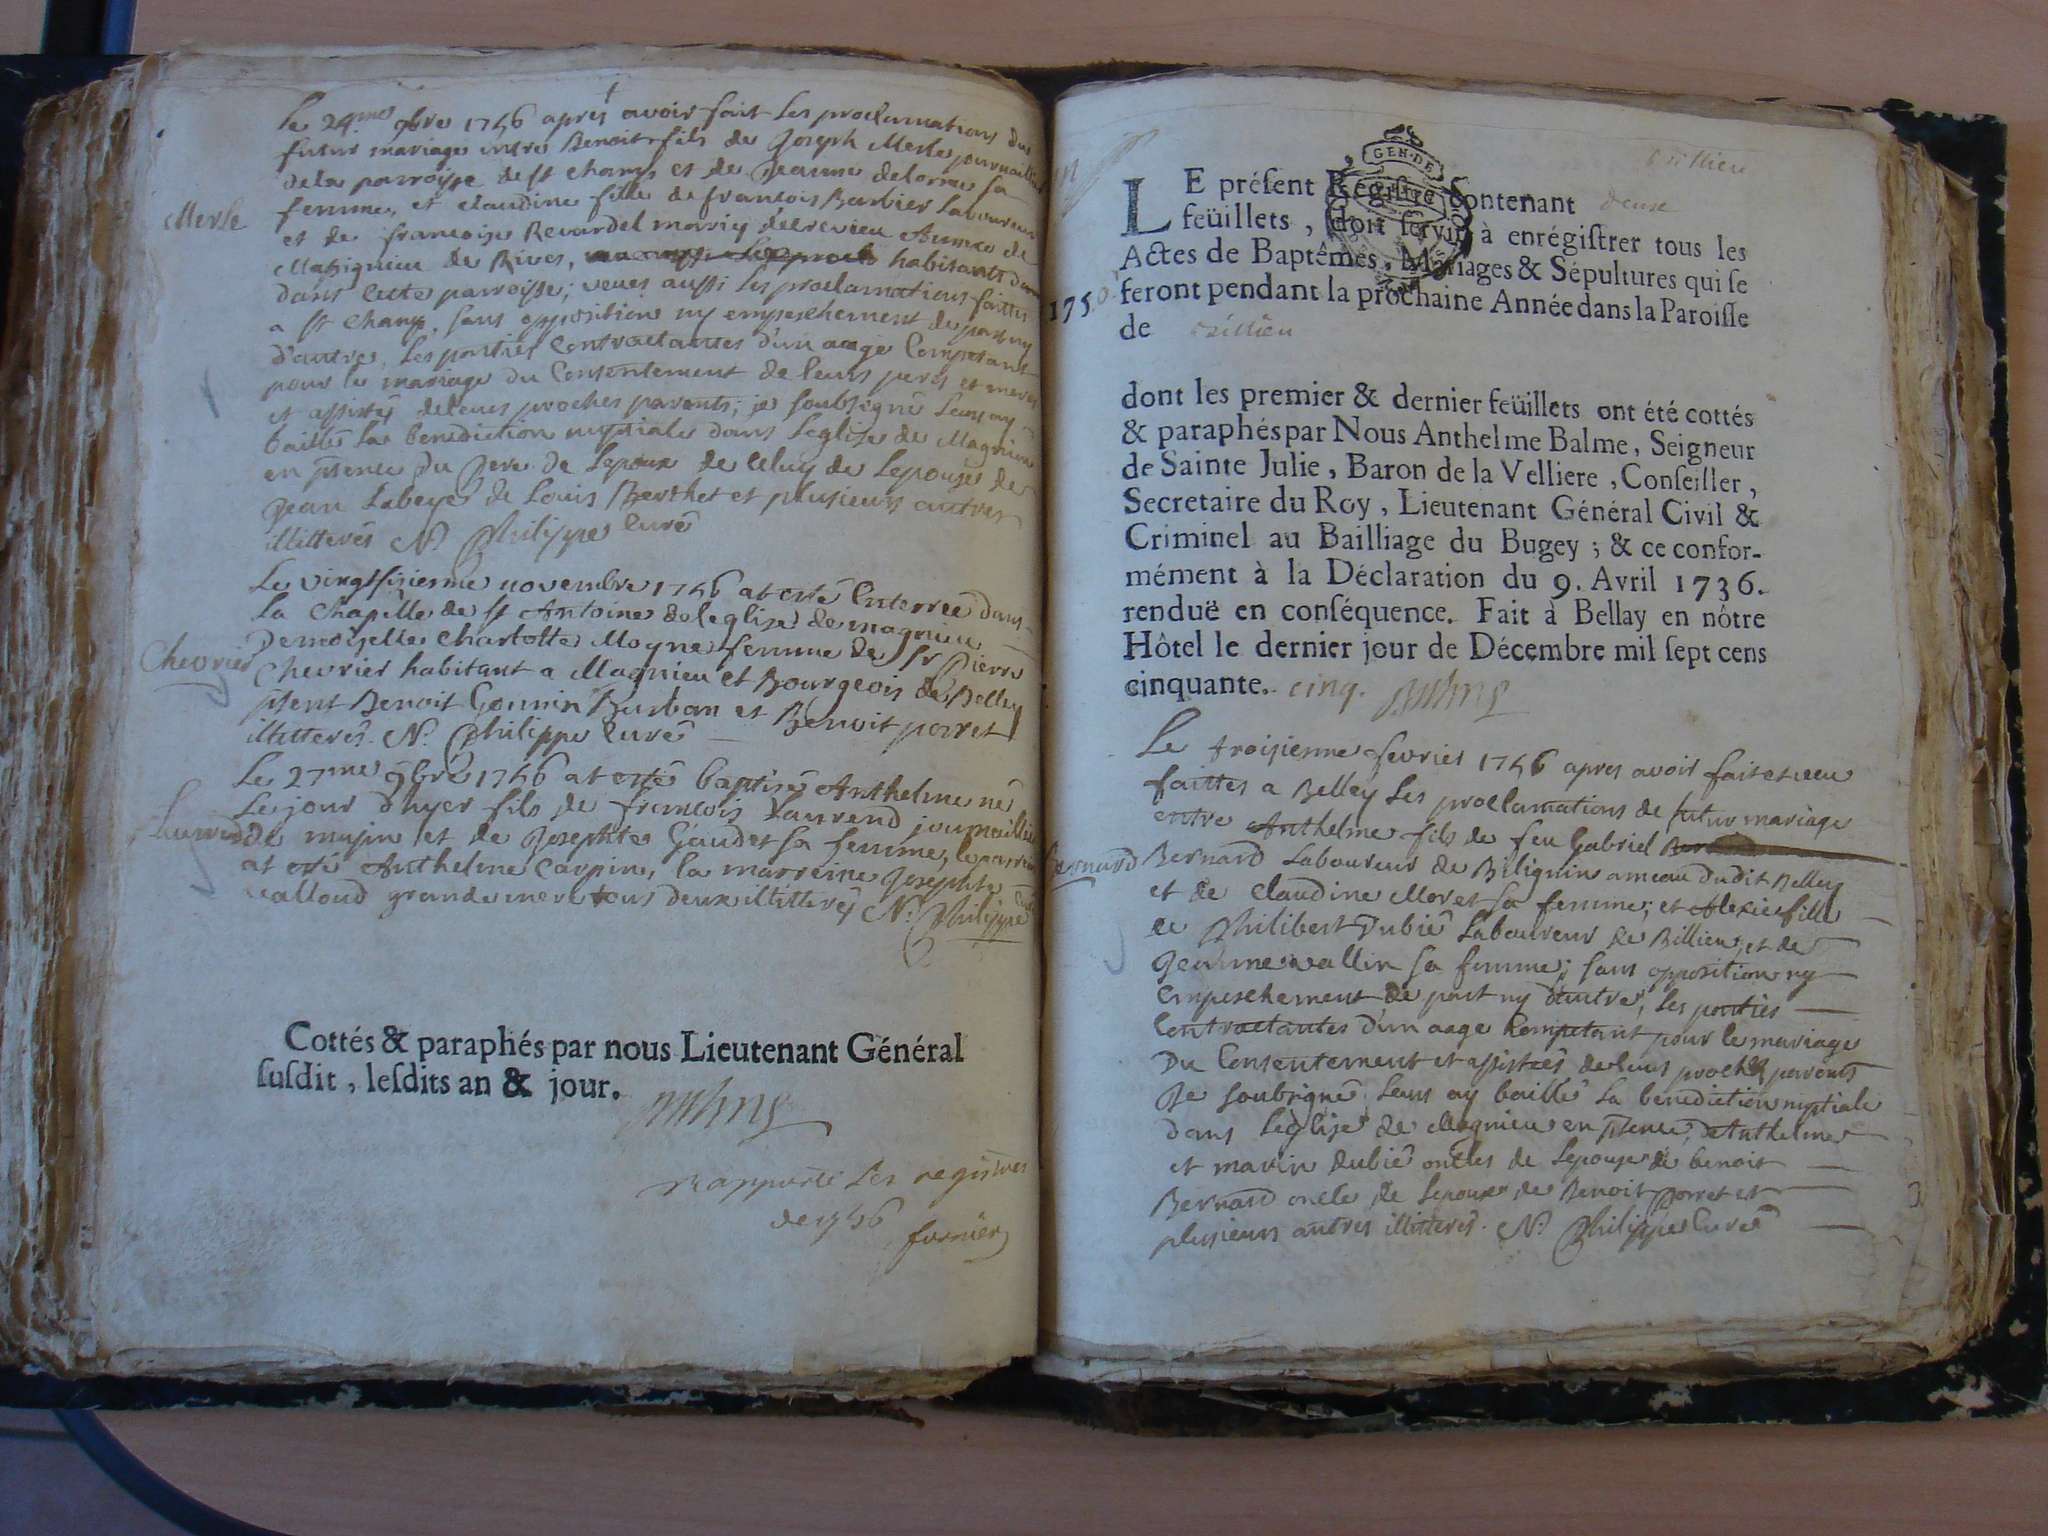 Le 24me 9bre 1756 apres avoir fait les proclamations du
futur mariage entre Benoit fils de Joseph Merle journallier
de la parroisse de st champ et de Jeanne delorme sa
femme, et claudine fille de francois Barbier Laboureur
Merle
et de francoise Revardel
Massignieu de Rives, habitants
dans cette parroisse; veues aussi les proclamations faittes
a st champ, sans opposition ny empeschement de part ny
d'autre, les parties Contractantes d'un aage Competant
pour le mariage du Consentement de leurs peres et meres
et assistés de leurs proches parents; je soubsigné leurs ay
baillé la benediction nuptiale dans Leglise de Magnieu
en presence du pere de Lepoux de celuy de Lepouse de
Jean Labeye de Louis Berthet et plusieurs autres
illitterés N. Philippe Curé
Le vingtsixieme novembre 1756 at esté Enterrée dans
la Chapelle de st Antoine de leglise de magnieu
Demoiselle Charlotte Moyne femme de sr Pierre
Chevrier
Chevrier habitant a Magnieu et Bourgeois de Belley
psent Benoit Gonnin Burban et Benoit porret
illitterés. N. Philippe Curé
Le 27me 9bre 1756 at esté baptisé Anthelme né
Le jour d'hyer fils de francois Laurend journallier
Laurend
de musin et de Josephte Gaudet sa femme, le parrein
at esté Anthelme Carpin, la marreine Josephte
alloud grande mere tous deux illitterés N. Philippe
Cottés & paraphés par nous Lieutenant Général
susdit, lesdits an & jour.
rapporté les registres
de 1756
GEN·DE
LE présent Régistre Contenant deux
feüillets, doit servir à enrégistrer tous les
Actes de Baptêmes, Mariages & Sépultures qui se
feront pendant la prochaine Année dans la Paroisse
175
de
dont les premier & dernier feüillets ont été cottés
& paraphés par Nous Anthelme Balme, Seigneur
de Sainte Julie, Baron de la Velliere, Conseiller,
Secretaire du Roy, Lieutenant Général Civil &
Criminel au Bailliage du Bugey; & ce confor-
mément à la Déclaration du 9. Avril 1736.
renduë en conséquence. Fait à Bellay en nôtre
Hôtel le dernier jour de Décembre mil sept cens
cinquante. cinq.
Le troisieme fevrier 1756 apres avoir fait et veu
faittes a Belley les proclamations de futur mariage
entre Anthelme fils de feu Gabriel
Bernard
Bernard Laboureur de Billignin ameau dudit Belley
et de Claudine Moret sa femme; et Alexie fille
de Philibert Dubié Laboureur de Billieu et de
Jeanne wallin sa femme; sans opposition ny
empeschement de part ny d'autre, les parties
Contractantes d'un aage Competant pour le mariage
Du Consentement et assistées de leurs proches parents
Je soubsigné leurs ay baillé la benediction nuptiale
dans Leglise de Magnieu en psence d'Anthelme
et marin dubié oncles de Lepouse de benoit
Bernard oncle de Lepoux de Benoit Porret et
plusieurs autres illitterés. N. Philippe Curé